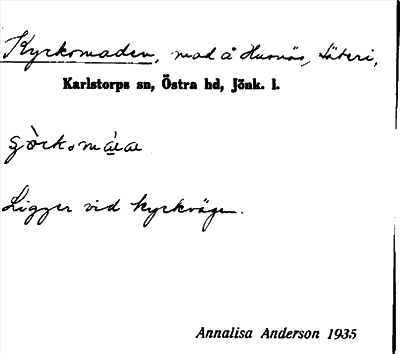 Kyrkomaden, mad å Husnäs, Säteri,
Karlstorps sn, Östra hd, Jönk. l.
Ligger vid kyrkvägen.
Annalisa Anderson 1935